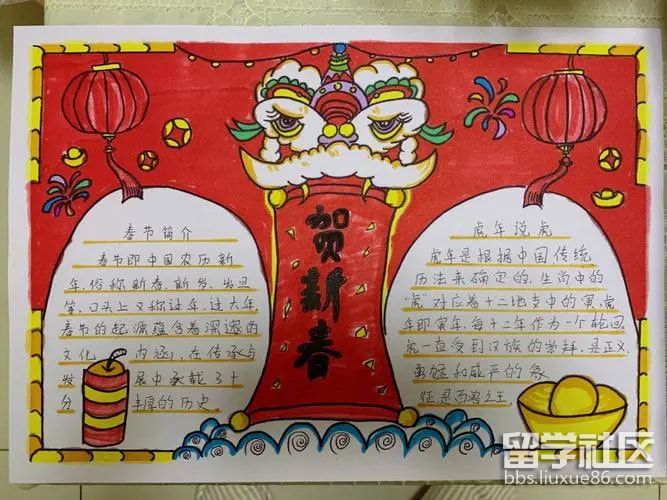 贺新春
春节简介
春节即中国农历新
年,俗称新春、新岁、岁旦
等,口头上又称过年、过大年,
春节的起源蕴含着深邃的
文化 内涵,在传承与
发 展中承载了十
分 丰厚的历史。
虎年说虎
虎年是根据中国传统
历法来确定的,生肖中的
“虎”对应着十二地支中的寅,虎
年即寅年,每十二年作为一个轮回,
虎一直受到汉族的崇拜,是正义
勇猛和威严的象
征,是百兽之王。
留学社区
bbs.liuxue86.com